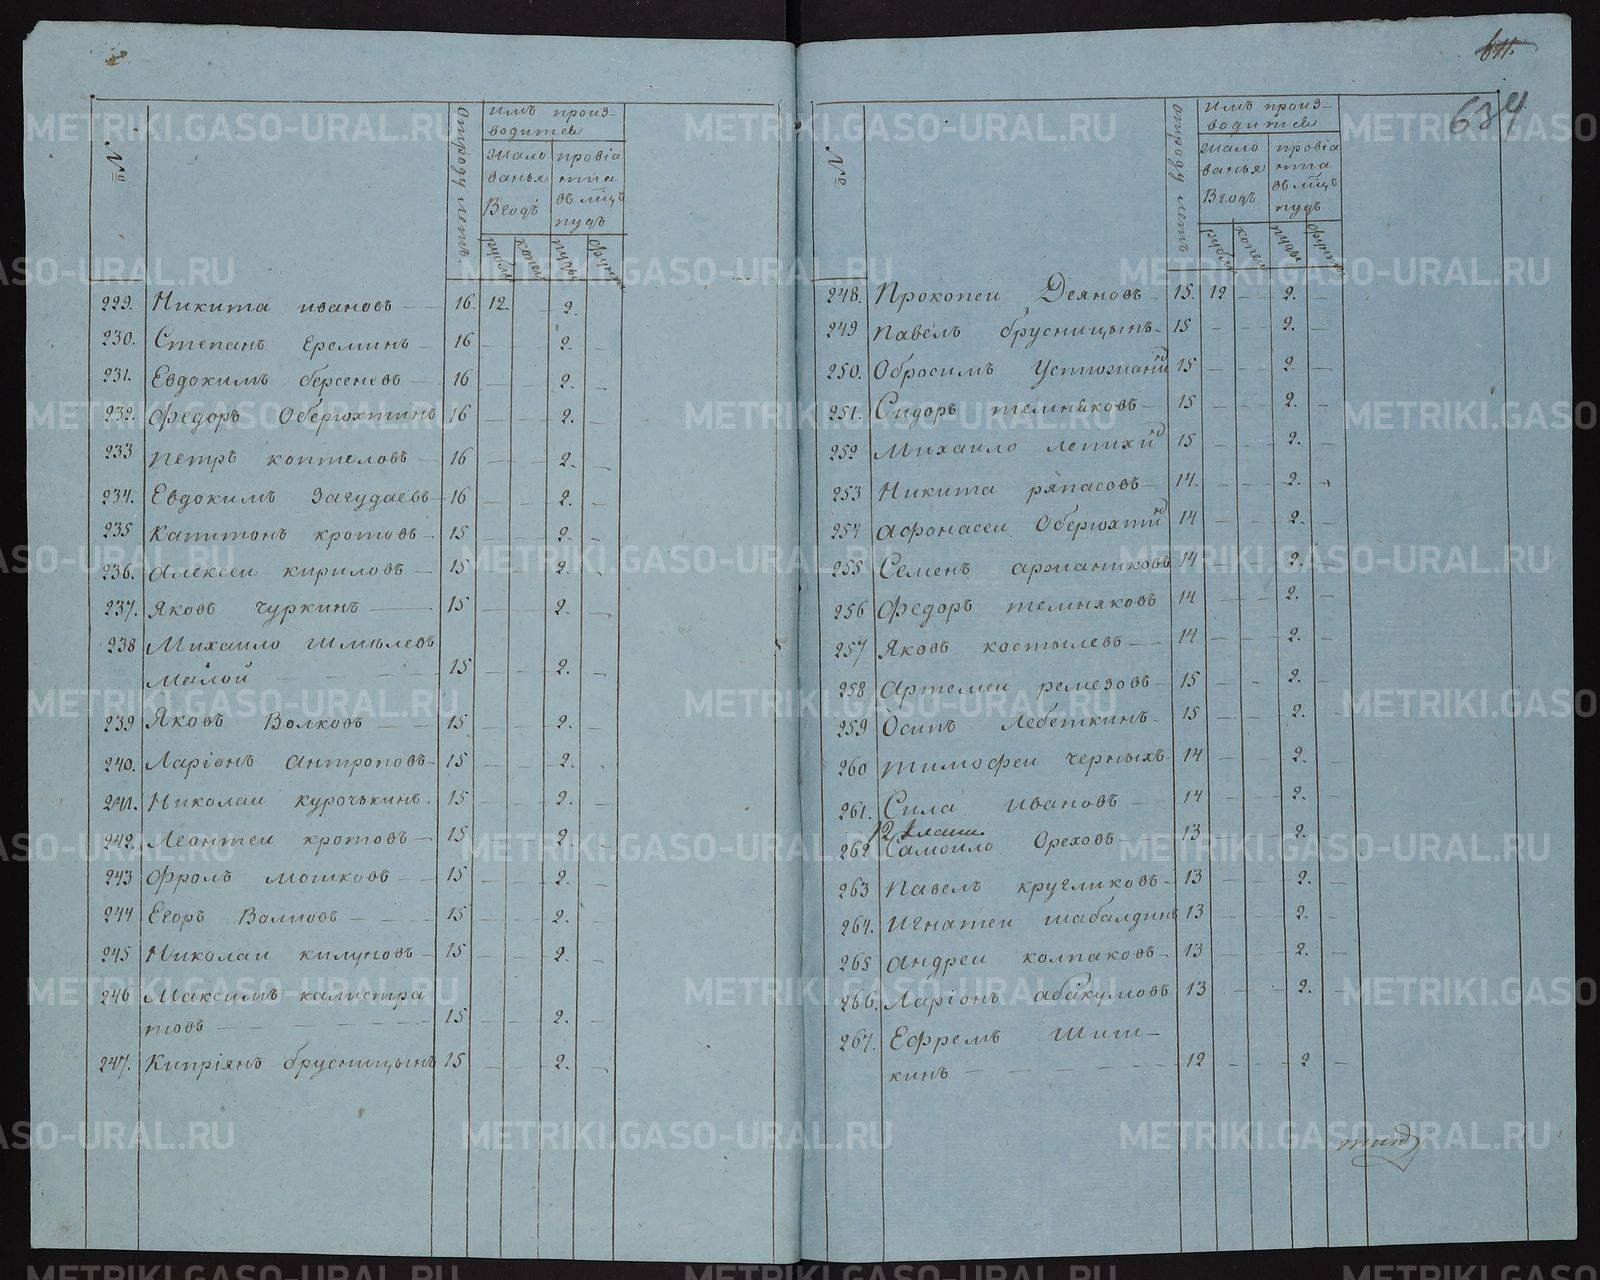 №
отроду летъ
имъ произ-
водится
жало
ванья
Вгодъ
провiа
нта
въ мцъ
пудъ
рубли
копеи
пуды
фунты
229. Никита ивановъ — 16. 12. — 2. —
230. Степанъ Ереминъ — 16 — — 2. —
231. Евдокимъ берсеневъ — 16 — — 2. —
232. Федоръ Оберюхтинъ 16 — — 2. —
233 петръ коптеловъ — 16 — — 2. —
234. Евдокимъ Загудаевъ — 16 — — 2. —
235 Капитонъ кротовъ — 15 — — 2. —
236. Алексеи кириловъ — 15 — — 2. —
237. Яковъ чуркинъ — 15 — — 2. —
238 Михаило Шмылевъ
малой — — — 15 — — 2. —
239 Яковъ Волковъ — 15 — — 2. —
240. Ларiонъ Антроповъ — 15 — — 2. —
241. Николаи курочькинъ. 15 — — 2. —
242. Леонтеи кротовъ — 15 — — 2. —
243 Фролъ мошковъ — 15 — — 2. —
244 Егоръ — 15 — — 2. —
245 Николаи килуновъ — 15 — — 2. —
246 Максимъ калистра
товъ — — — 15 — — 2. —
247. Кипрiянъ брусницынъ 15 — — 2. —
64.
634
№
отроду летъ
имъ произ-
водится
жало
ванья
Вгодъ
провiа
нта
въ мцъ
пудъ
рубли
копеи
пуды
фунты
248. Прокопеи Деяновъ — 15. 12 — 2. —
249 Павелъ брусницынъ — 15 — — 2. —
250. Обросимъ Устюжанинъ 15 — — 2. —
251. Сидоръ темняковъ — 15 — — 2. —
252 Михаило лепихинъ 15 — — 2. —
253 Никита ряпасовъ — 14. — — 2. —
254 Афонасеи Оберюхтинъ 14 — — 2. —
255 Семенъ аржаниковъ 14 — — 2. —
256 Федоръ темняковъ 14 — — 2. —
257 Яковъ костылевъ — 14 — — 2. —
258 Артемеи ремезовъ — 15 — — 2. —
259 Осипъ Лебеткинъ — 15 — — 2. —
260 тимофеи черныхъ 14 — — 2. —
261. Сила ивановъ — 14 — — 2. —
12 класи
262 Самоило Ореховъ — 13 — — 2. —
263 Павелъ кругликовъ — 13 — — 2. —
264. Игнатеи шабалдинъ 13 — — 2. —
265 андреи колпаковъ — 13 — — 2. —
266. Ларiонъ абакумовъ 13 — — 2. —
267. Ефремъ Шиш—
кинъ — — — 12 — — 2 —
METRIKI.GASO-URAL.RU